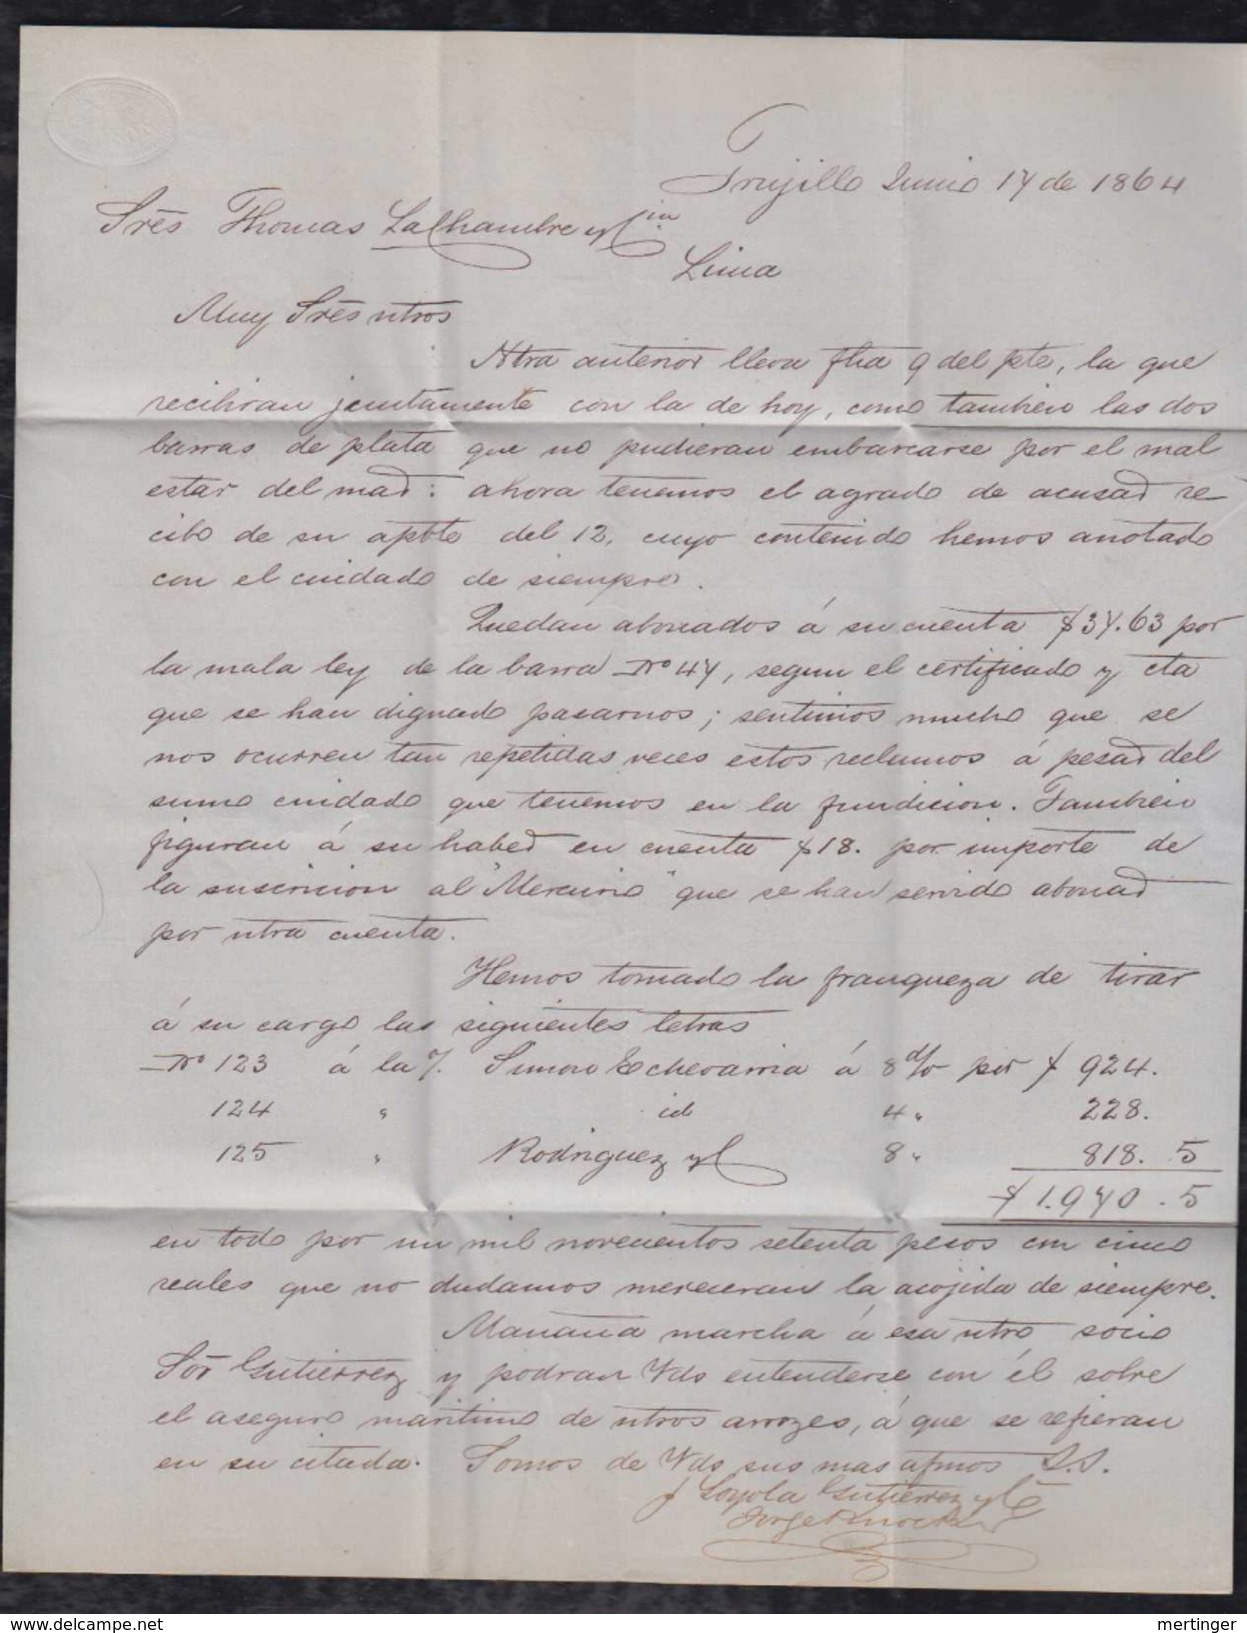 Trujillo Junio 17 de 1864
Sres Thomas LaChambre y Cia
Lima
Muy Sres ntros
Ntra anterior lleva fha 9 del pte, la que
recibiran juntamente con la de hoy, como tambien las dos
barras de plata que no pudieran embarcarse por el mal
estar del mar: ahora tenemos el agrado de acusar re-
cibo de su apble del 12, cuyo contenido hemos anotado
con el cuidado de siempre.
Quedan abonados á su cuenta $37.63 por
la mala ley de la barra No 47, segun el certificado y cta
que se han dignado pasarnos; sentimos mucho que se
nos ocurren tan repetidas veces estos reclamos á pesar del
sumo cuidado que tenemos en la fundicion. Tambien
figuran á su haber en cuenta $18. por importe de
la suscricion al "Mercurio" que se han servido abonar
por ntra cuenta.
Hemos tomado la franqueza de tirar
á su cargo las siguientes letras
No 123 á la /. Simon Echevarria á 8 d/v por $ 924.
124 " id 4 " 228.
125 " Rodriguez y C 8 " 818. 5
$ 1.970. 5
en todo por un mil novecientos setenta pesos con cinco
reales que no dudamos mereceran la acojida de siempre.
Mañana marcha á esa ntro socio
Sor Gutierrez y podran Vds entenderse con él sobre
el aseguro maritimo de ntros arrozes, á que se refieran
en su citada. Somos de Vds sus mas afmos S.S.
J Loyola Gutierrez y Ca
Jorge
delcampe.net
mertinger